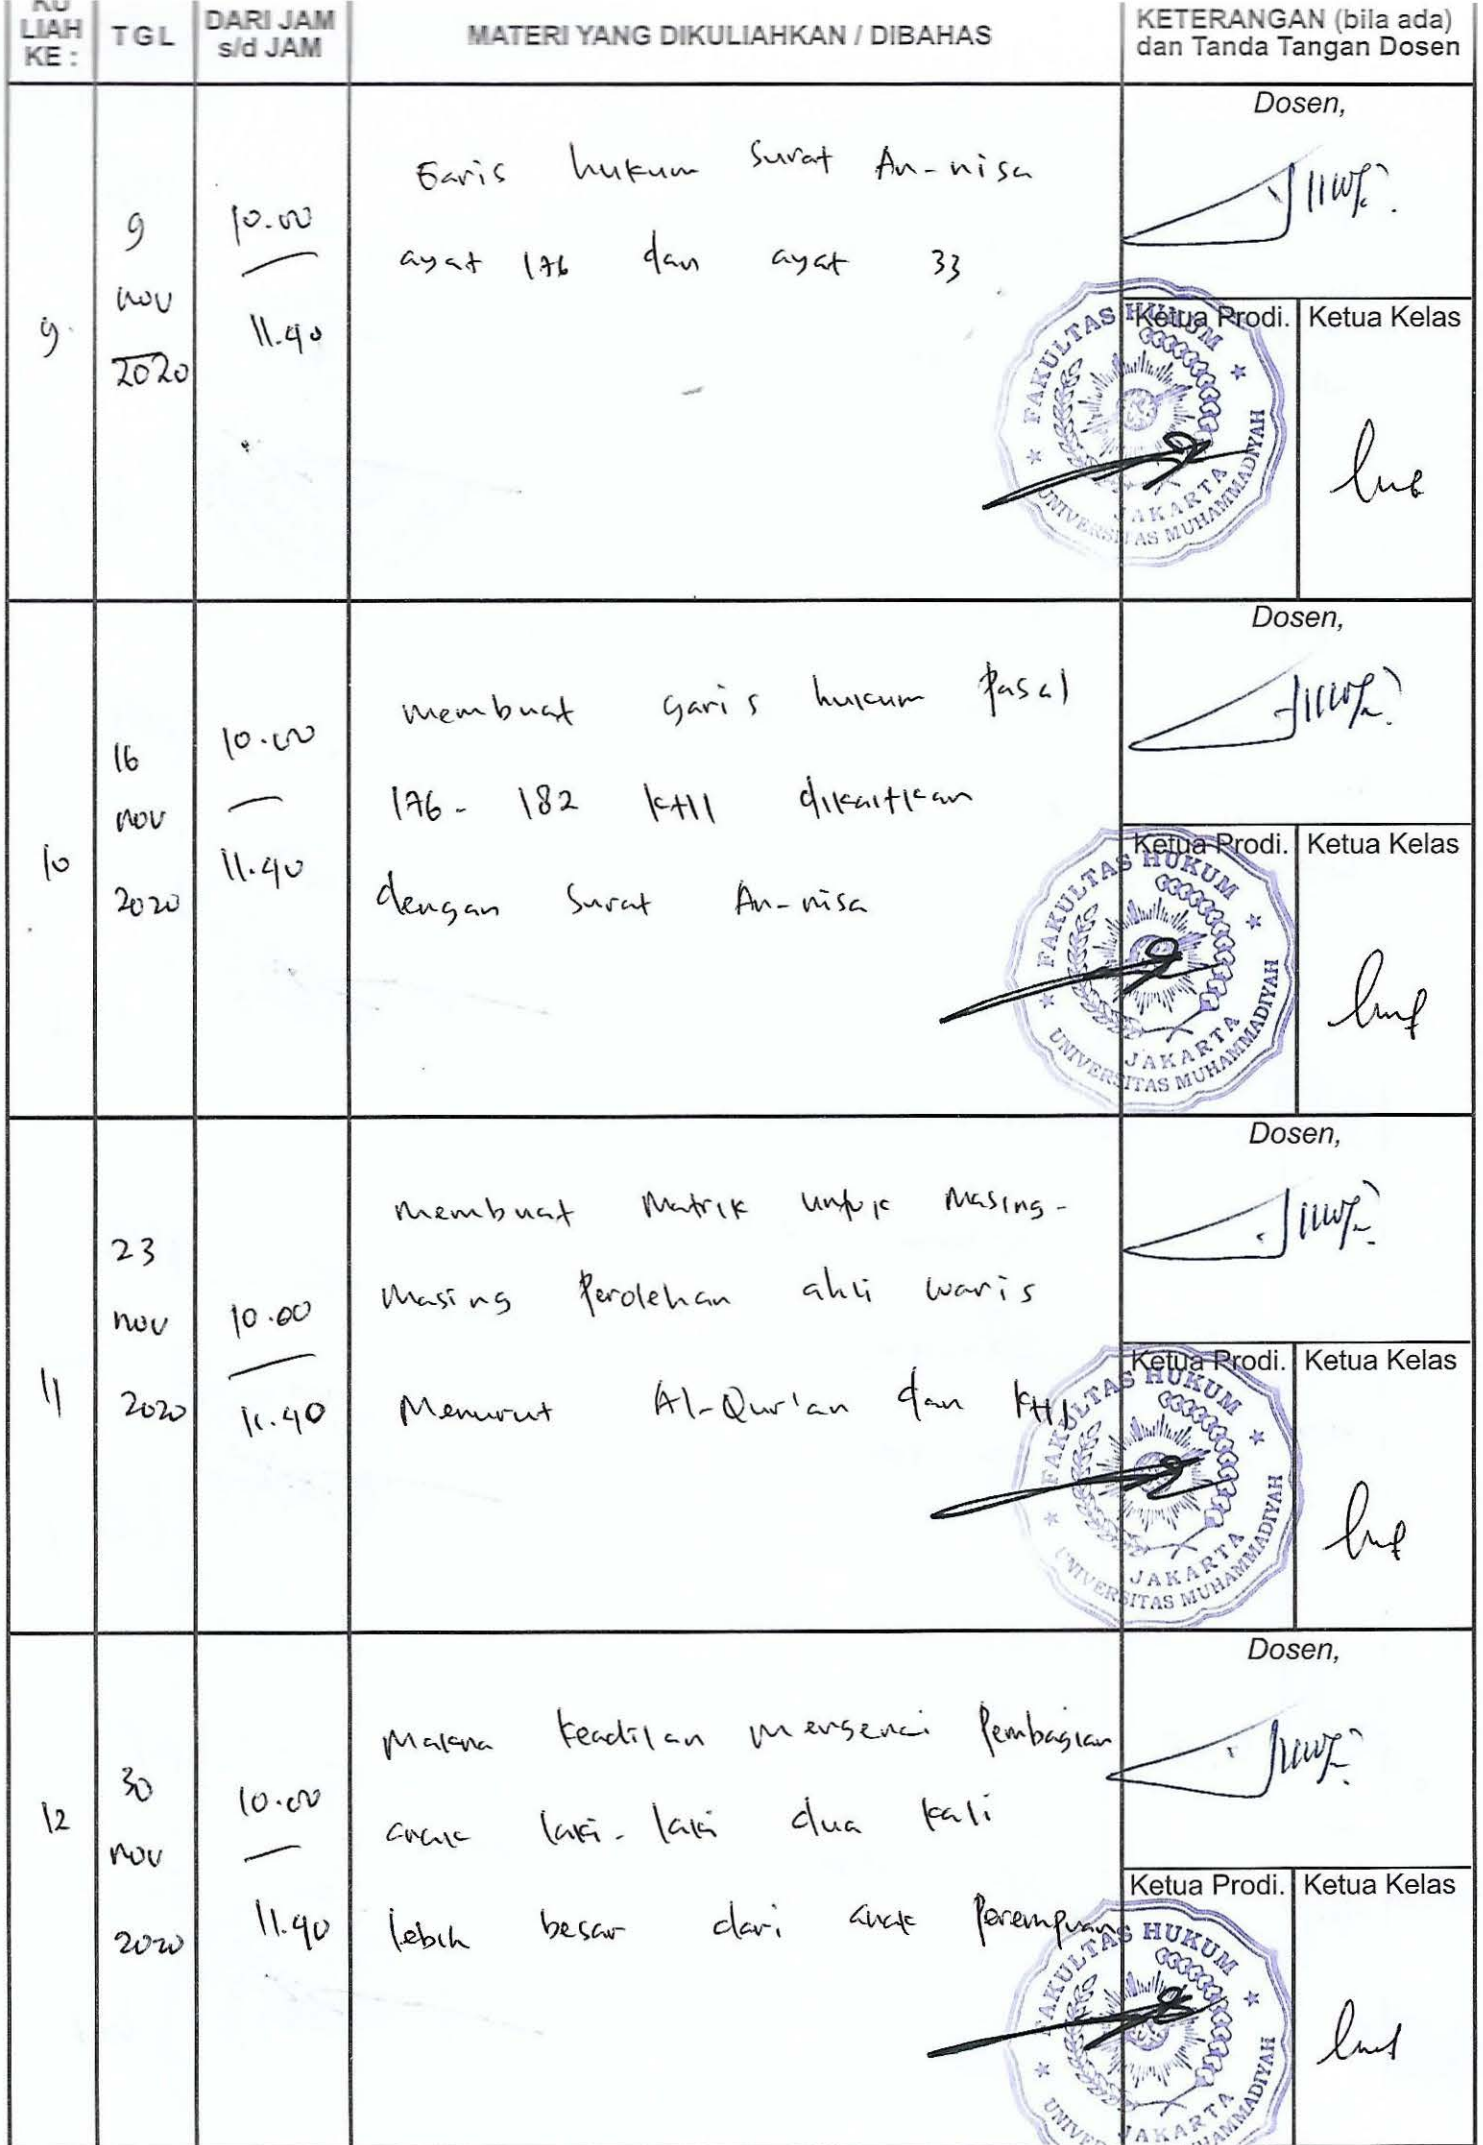 KU
LIAH
KE :
TGL
DARI JAM
s/d JAM
MATERI YANG DIKULIAHKAN / DIBAHAS
KETERANGAN (bila ada)
dan Tanda Tangan Dosen
9
9
nov
2020
10.00
11.40
Garis hukum Surat An-nisa
ayat 176 dan ayat 33
Dosen,
Ketua Prodi.
Ketua Kelas
FAKULTAS HUKUM
UNIVERSITAS MUHAMMADIYAH
JAKARTA
10
16
nov
2020
10.00
11.40
membuat garis hukum Pasal
176 - 182 KHI dikaitkan
dengan Surat An-nisa
Dosen,
Ketua Prodi.
Ketua Kelas
FAKULTAS HUKUM
UNIVERSITAS MUHAMMADIYAH
JAKARTA
11
23
nov
2020
10.00
11.40
membuat Matrik untuk Masing-
Masing Perolehan ahli waris
Menurut Al-Qur'an dan KHI
Dosen,
Ketua Prodi.
Ketua Kelas
FAKULTAS HUKUM
UNIVERSITAS MUHAMMADIYAH
JAKARTA
12
30
nov
2020
10.00
11.40
Makna keadilan mengenai Pembagian
anak laki-laki dua kali
lebih besar dari anak Perempuan
Dosen,
Ketua Prodi.
Ketua Kelas
FAKULTAS HUKUM
JAKARTA